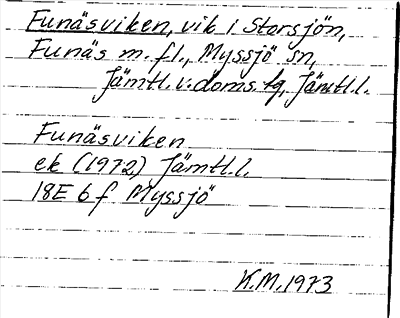 Funäsviken, vik i Storsjön,
Funäs m.fl., Myssjö sn,
Jämtl.v:doms.tg, Jämtl.l.
Funäsviken
ek (1972) Jämtl.l.
18E 6 f Myssjö
K.M. 1973